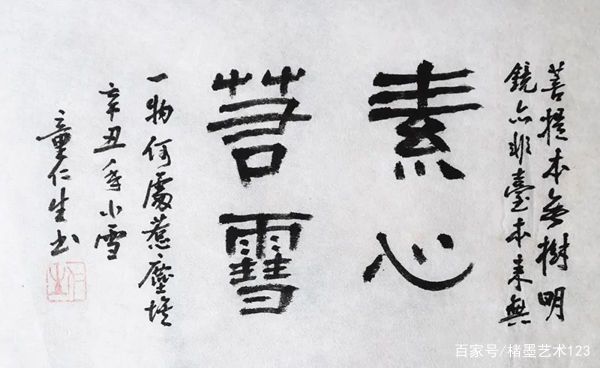 菩提本无樹明
鏡亦非臺本来無
素心
若雪
一物何處惹塵埃
辛丑年小雪
童仁生书
百家号/楮墨艺术123